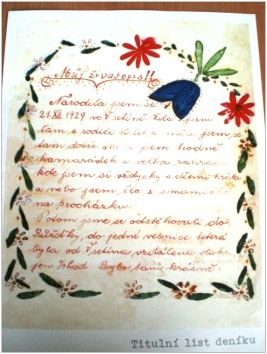 Můj životopis!!
Narodila jsem se
21.XII. 1929 ve Vsetíně. Žila jsem
tam s rodiči 10 let a měla jsem se
tam dobře. Měla jsem hodně
kamarádek a velkou zahradu
kde jsem si vždycky s dětmi hrála
a nebo jsem šla s maminkou
na procházku.
Potom jsme se odstěhovali do
Růžďky, do jedné vesnice která
byla od Vsetína vzdálena
jen hod. Bylo tam krásně
Titulní list deníku